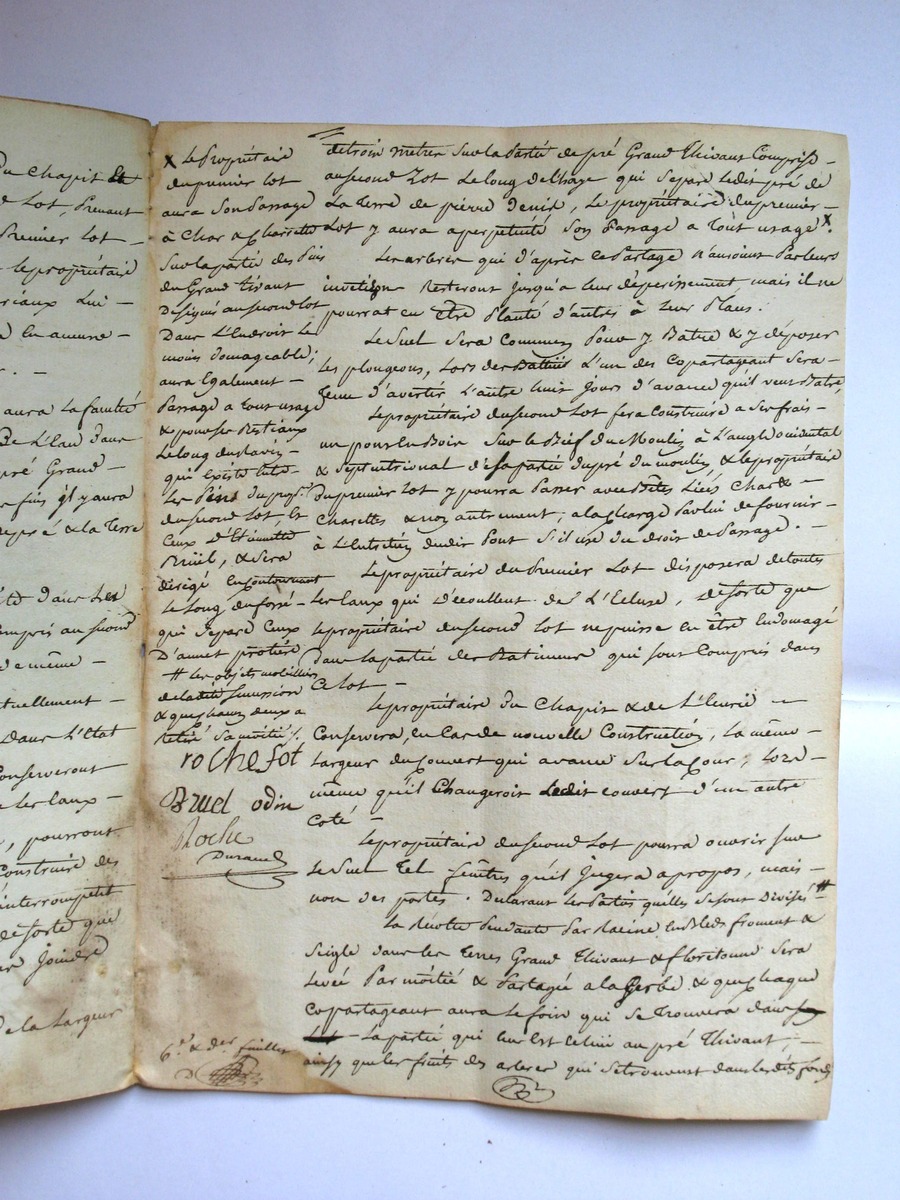 Du Chapit &
Lot, Prenant
Premier Lot -
le propriétaire
Lui -
En amure -
aura la faculté
De L'Eau dans
pré Grand -
fins q'il y aura
& La Terre
dans Les
compris au second
de même -
-tuellement -
Dans L'état
Conserveront
Les Eaux -
, pourront
Construire des
interrompit
de sorte que
Joindre
De la Largeur
x Le Propriétaire
du premier Lot
aura Son Passage
à Char & Charrette
Sur la partie des Puis
du Grand thivant
Designés au second Lot
Dans L'Endroit Le
moins domageable;
aura Egalement -
Passage a tout usage
& pour ses Bestiaux
Le Long du
qui Existe Entre
Les du prop.re
du second Lot, Et
Ceux D'Etiennette
Bruël, & Sera
dirigé En Contournant
Le Long du fossé -
qui Separe Ceux
D'annet
# Les objets mobilliers
de la dite Succession
& que chacun deux a
Retiré Sa moitié ./.
rochefot
Bruel odin
Roche
Durand
6.e & der feuillet
de trois metres Sur la Partie de pré Grand Thivant Compris -
au second Lot Le Long de L'haye qui Separe Ledit pré de
La Terre de pierre Denis, Le propriétaire du premier -
Lot y aura a perpetuité Son Passage a Tout usage x.
Les arbres qui d'après ce Partage n'auront Par Leurs
Resteront jusqu'a leur déperissement, mais il ne
pourrat en Être Planté d'autres à Leur Place.
Le Suel Sera Commun Pour y Batre & y déposer
Les plongeons, Lors des Battus L'un des Copartageant Sera -
Tenu d'avertir L'autre huit jours d'avance qu'il veut Batre,
Le propriétaire du second Lot fera Construire a Ses frais -
un pont En Bois Sur le Bief du Moulin à L'angle occidental
& Septentrional d' Sa partie du pré du moulin, & le propriétaire
du premier Lot y pourra Passer avec Bêtes Liées Char & -
Charettes & non autrement, a la Charge Par Lui de fournir
à L'Entretien dudit Pont S'il use du droit de Passage. -
Le propriétaire du Premier Lot disposera de toutes
Les Eaux qui D'écoullent de L'Ecluse, de sorte que
Le propriétaire du second Lot ne puisse En être Endomagé
dans la partie des Batimens qui sont Compris dans
Ce Lot -
Le propriétaire du Chapit & de L'Ecurie -
Conservera, En Cas de nouvelle Construction, La même -
Largeur du Couvert qui avance Sur la Cour, Lors -
même qu'il Changeroit Ledit couvert d'un autre
coté -
Le propriétaire du second Lot pourra ouvrir sur
Le Suel Tel fenêtres qu'il Jugera apropos, mais -
non des portes. Declarant Les Parties qu'elles Se sont Divisés #
La Récolte Pendante Par Racine, Bleds froment &
Seigle dans les Terres Grand Thivant & Sera
Levée Par moitié & Partagée a la Gerbe & que chaque
Copartageant aura Le foin qui Se Trouvera dans
La partie qui Leur Est Echue au pré Thivant, -
ainsy que les fruits des arbres qui Se trouvent dans lesdits fonds